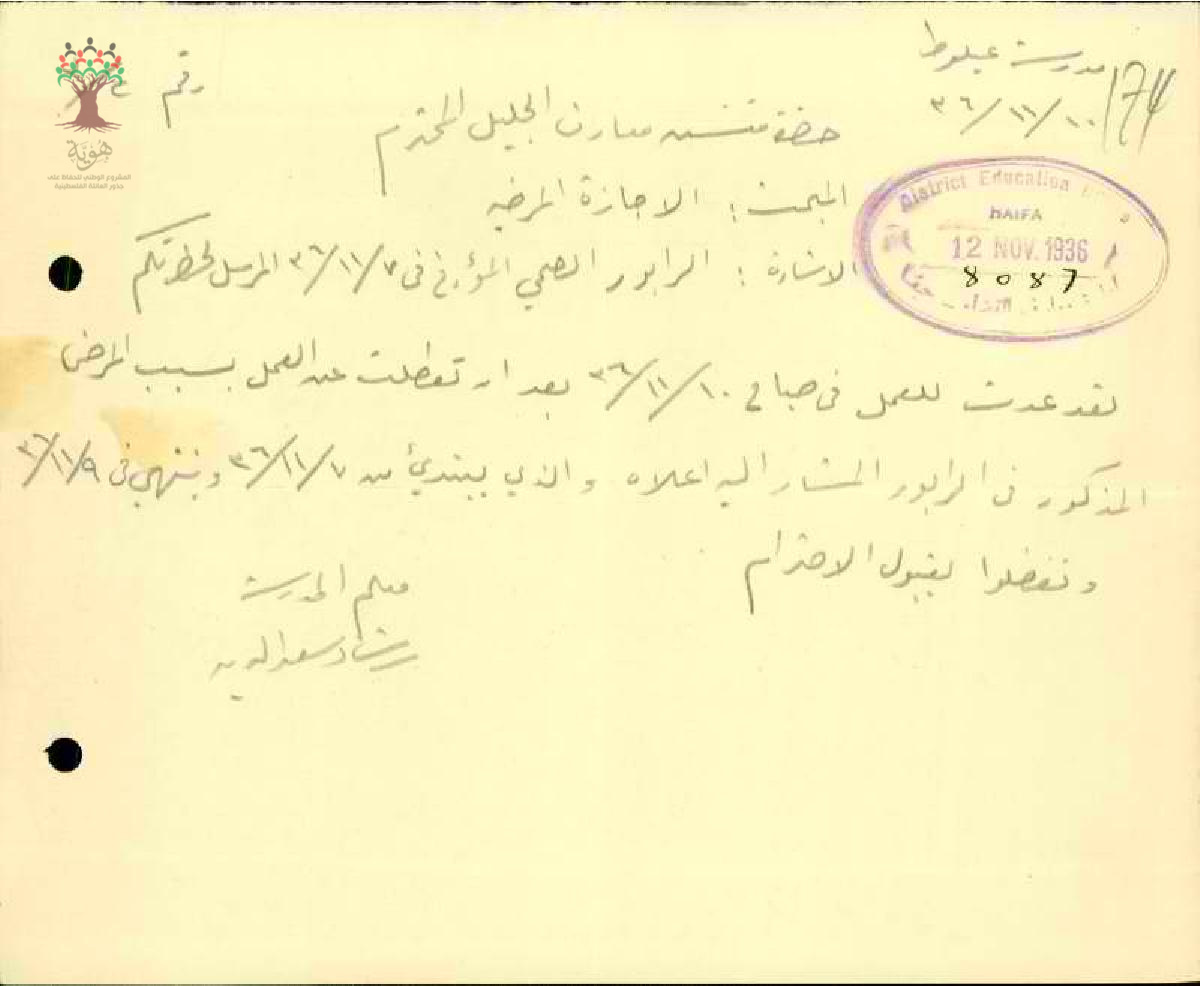 مدرسة عيلوط
٣٦/١١/١٠
174
رقم ع
حضرة مفتش معارف الجليل المحترم
المبحث : الاجازة المرضيه
الاشارة : الرابور الصحي المؤرخ في ٣٦/١١/٧ المرسل لحضرتكم
لقد عدت للعمل في صباح ٣٦/١١/١٠ بعد ان تعطلت عن العمل بسبب المرض
المذكور في الرابور المشار اليه اعلاه والذي يبتدئ من ٣٦/١١/٧ وينتهي في ٣٦/١١/٩
وتفضلوا بقبول الاحترام
معلم المدرسة
رشاد سعد الدين
District Education
HAIFA
12 NOV. 1936
8087
حيفا
هوية
المشروع الوطني للحفاظ على
جذور العائلة الفلسطينية